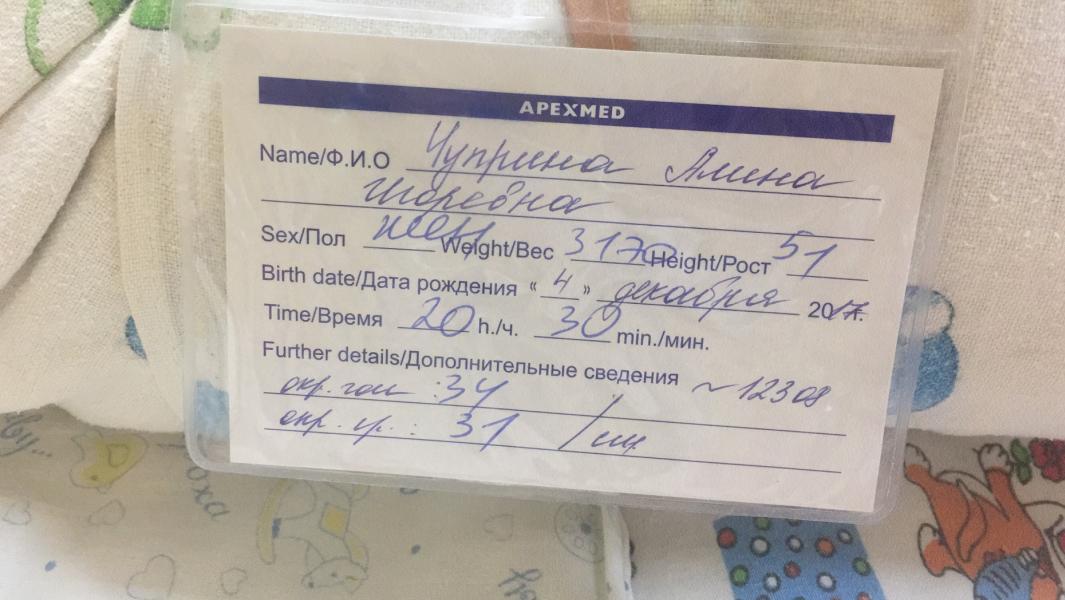 APEXMED
Name/Ф.И.О Чуприна Алина
Игоревна
Sex/Пол жен Weight/Вес 3170 Height/Рост 51
Birth date/Дата рождения « 4 » декабря 2017г.
Time/Время 20 h./ч. 30 min./мин.
Further details/Дополнительные сведения ~12308
окр. гол : 34
окр. гр. : 31 /